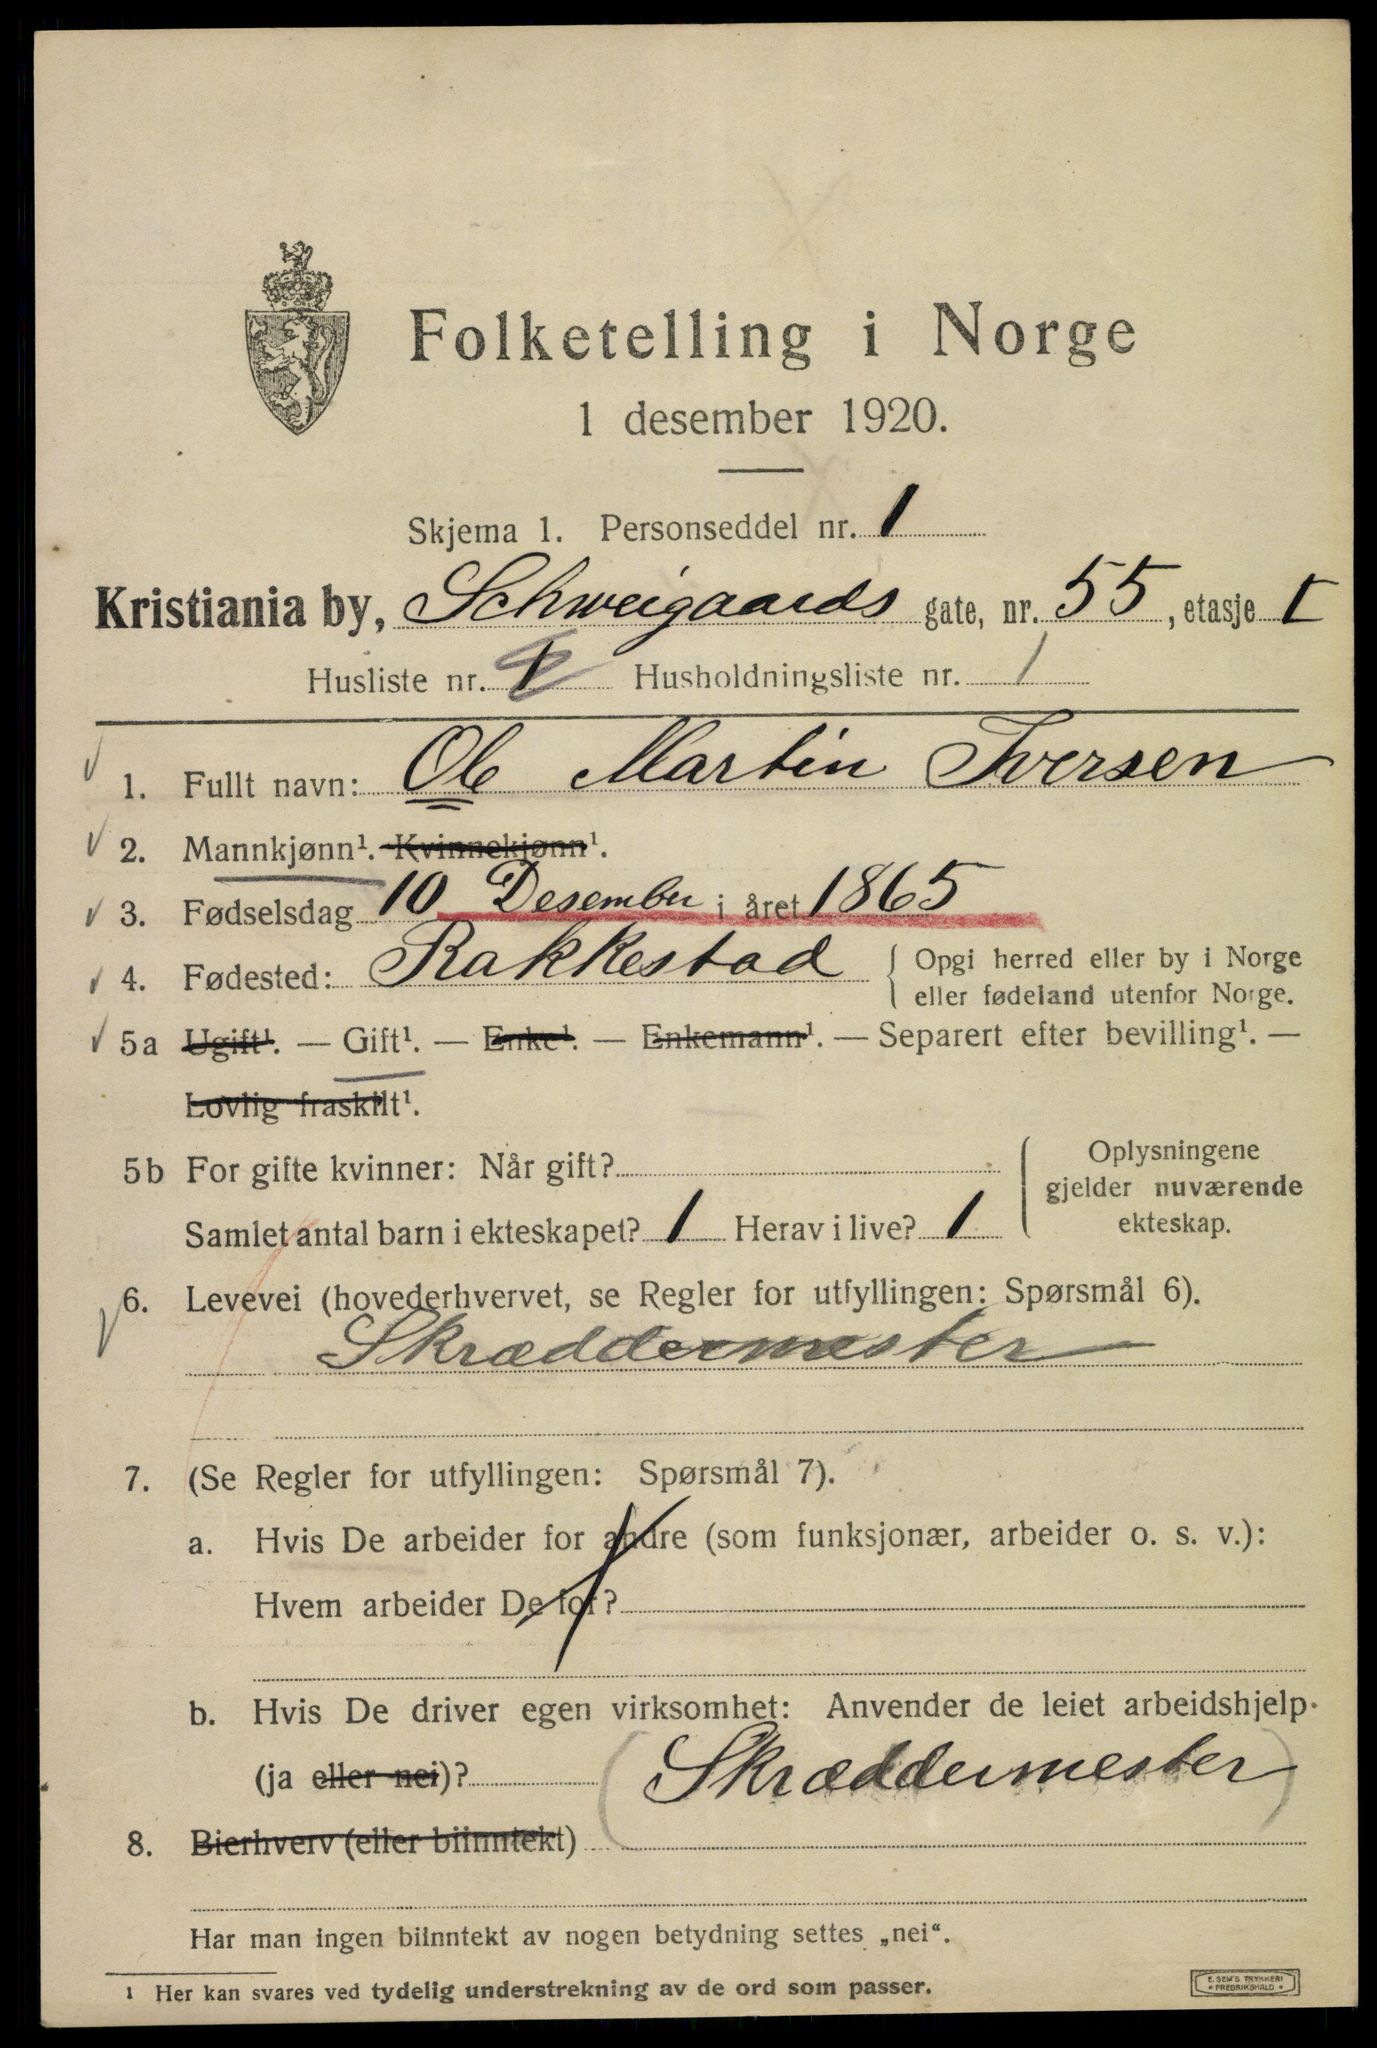 Folketelling i Norge
1 desember 1920.
Skjema 1. Personseddel nr. 1
Kristiania by, Schweigaards gate, nr. 55, etasje I
Husliste nr. 1 Husholdningsliste nr. 1
1. Fullt navn: Ole Martin Iversen
2. Mannkjønn¹. Kvinnekjønn¹.
3. Fødselsdag 10 Desember i året 1865
4. Fødested: Rakkestad { Opgi herred eller by i Norge
eller fødeland utenfor Norge.
5a Ugift¹. — Gift¹. — Enke¹. — Enkemann¹. — Separert efter bevilling¹. —
Lovlig fraskilt¹.
5b For gifte kvinner: Når gift?
Samlet antal barn i ekteskapet? 1 Herav i live? 1
Oplysningene
gjelder nuværende
ekteskap.
6. Levevei (hovederhvervet, se Regler for utfyllingen: Spørsmål 6).
Skræddermester
7. (Se Regler for utfyllingen: Spørsmål 7).
a. Hvis De arbeider for andre (som funksjonær, arbeider o. s. v.):
Hvem arbeider De for?
b. Hvis De driver egen virksomhet: Anvender de leiet arbeidshjelp.
(ja eller nei)? (Skræddermester)
8. Bierhverv (eller biinntekt)
Har man ingen biinntekt av nogen betydning settes „nei“.
1 Her kan svares ved tydelig understrekning av de ord som passer.
E. SEM'S TRYKKERI
• FREDRIKSHALD •